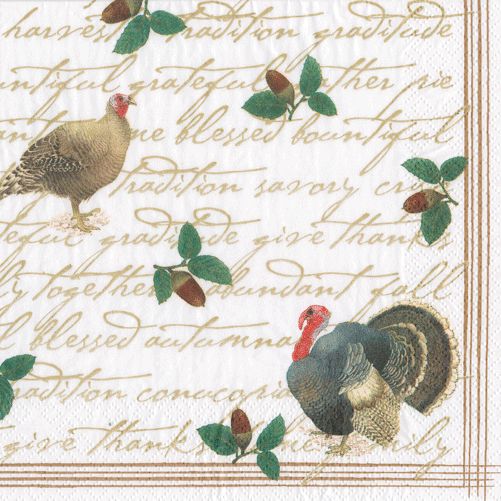 harvest tradition gratitude
grateful gather pie
blessed bountiful
tradition savory
gratitude give thanks
together abundant fall
blessed autumnal
tradition
give thanks family